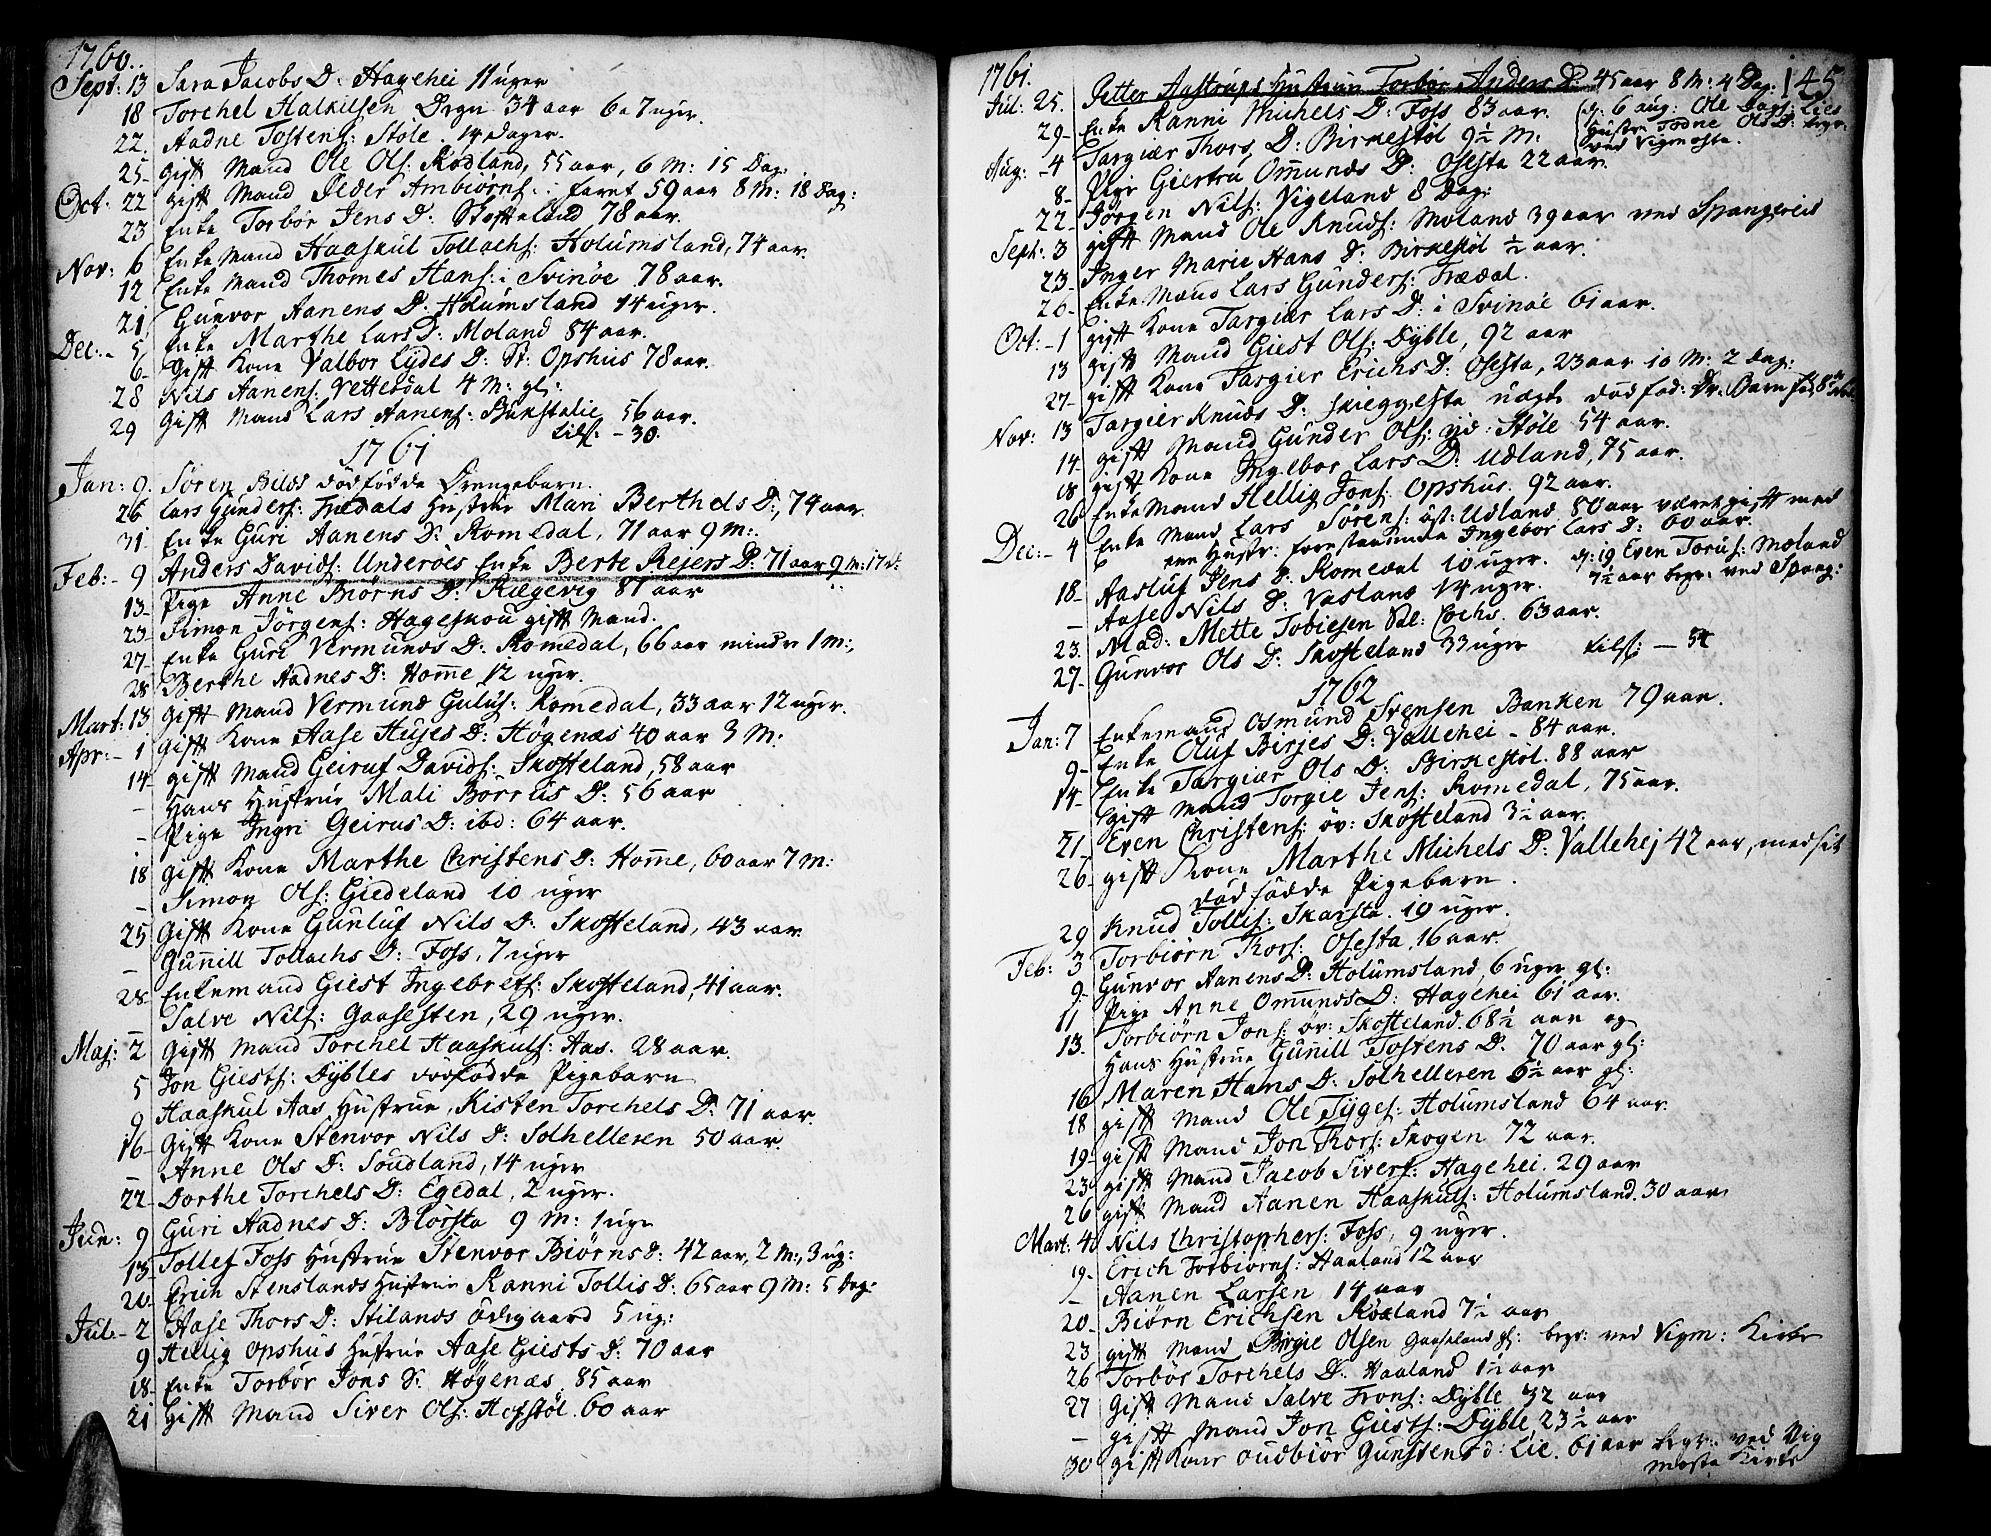 1760.
Sept: 13 Sara Jacobs D: Hagehei 11 uger
18 Torchel Halkilsen Dregn 34 aar 6 a 7 uger.
22. Aadne Tostens: Støle. 14 dager.
25- Gift Mand Ole Ols: Rødland, 55 aar, 6 M: 15 Dag:
Oct: 22 gift Mand Peder Ambiörns: i faret 59 aar 8 M: 18 Dag:
23 Enke Torbör Jens D: Skofteland 78 aar.
Nov: 6 Enke Mand Haaskul Tollachs: Holumsland, 74 aar.
12 Enke Mand Thomes Hans: i Svinöe 78 aar.
21 Gunvor Aanens D: Holumsland 14 uger.
Dec: - 5 Enke Marthe Lars D: Moland 84 aar.
6- Gift Kone Valbor Lydes D: St: Opshus 78 aar.
28 Nils Aanens: Vettesdal 4 M: gl:
29 Gift Mand Lars Aanens: Bukstalie 56 aar.
tils: - 30.
1761
Jan: 9. Sören Bilds dödfödde Drengebarn.
26 Lars Gunders: Trædals Hustrue Mari Berthels D:, 74 aar.
31. Enke Guri Aanens D: Romedal, 71 aar 9 M:
Feb: - 9 Anders Davids: Underöes Enke Berte Reiers D: 71 aar 9 M: 17 d:
13- Pige Anne Biörns D: Rægevig 81 aar
23- Simon Jörgens: Hageskou gift Mand.
27- Enke Guri Vermunds D: Romedal, 66 aar mindre 1 M:,
28 Berthe Aadnes D: Home 12 uger.
Mart: 13 gift Mand Vermund Guluf: Romedal, 33 aar 12 uger.
Apr: - 1 gift Kone Aase Hujes D: Høgenæs 40 aar 3 M:
14- gift Mand Geiruf Davids: Skofteland, 58 aar
- Hans Hustrue Mali Börrüs D: 56 aar
- Pige Ingri Geirus D: ibd: 64 aar.
18 gift Kone Marthe Christens D: Home, 60 aar 7 M:
- Simon Ols: Giedeland 10 uger
25 Gift Kone Gunluf Nils D: Skofteland, 43 aar.
- Gunnill Tollachs D: Foss, 7 uger
28- Enkemand Giest Ingebrets: Skofteland, 41 aar.
- Salve Nils: Gaasesten, 29 uger.
Maj: 2 gift Mand Torchel Haaskuls: Aas. 28 aar.
5 Jon Giests: Dybles dödfödde Pigebarn
9 Haaskul Aas Hustrue, Kisten Torchels D: 71 aar.
16- Gift Kone Stenvor Nils D: Solhelleren 50 aar.
- Anne Ols D: Söudland, 14 uger
22 Dorthe Torchels D: Egedal, 2 uger.
Jun: 9 Guri Aadnes D: Blörsta 9 M: 1 uge
13- Tollef Foss Hustrue Stenvor Biörns d: 42 aar, 2 M:, 3 ug:
20- Erich Stenslands Hustrue Ranni Tollis D: 65 aar 9 M: 5 Dag:
Jul: - 2 Aase Thors D: Stilands ödegaard 5 ug:
9 Hellig Opshus Hustrue Aase Giests D: 70 aar
18- Enke Torbör Jons D: Högenæs. 85 aar
21 Gift Mand Siver Ols: Hofstöl. 60 aar
1761. 145
Jul: 25. Petter Aastrups Hustrue Torbör Anders D: 45 aar 8 M: 4 Dag:
29- Enke Ranni Michels D: Foss 83 aar.
(d: 6 aug: Ole Dags: Lies
Hustr: Todne Ols D: begr:
ved Vigmosta.
Aug: - 4 Targier Thors D: Birkestöl 9 ½ M:
8- Pige Giertru Omunds D: Osesta 22 aar.
22- Jörgen Nils: Vigeland 8 Dag:
Sept: 3 gift Mand Ole Knuds: Moland 39 aar ved Spangereid
23- Inger Marie Hans D: Birkestöl ½ aar.
26- Enke Mand Lars Gunders: Trædal.
Oct: - 1 gift Kone Targier Lars D: i Svinöe 61 aar.
13 gift Mand Giest Ols: Dyble, 92 aar
27- gift Kone Targier Erichs D: Osesta, 23 aar 10 M: 2 Dag:
Nov: 13 Targier Knuds D: Skieggesta uægte
14- gift Mand Gunder Ols: Støle 54 aar.
18 gift Kone Ingebor Lars D: Udland, 75 aar.
26 Enke Mand Hellig Jons: Opshus. 92 aar.
Dec: - 4 Enke Mand Lars Sörens: öst: Udland 80 aar været gift med
Hustr: forestaaende Ingebor Lars D: 60 aar.
18- Aasluf Jens D: Romedal 10 uger. d: 19 Even Torüs: Moland
7 ½ aar begr: ved Spang:
- Aase Nils D: Vasland 14 uger.
23. Mad: Mette Tobiesen Sl: Lochs. 63 aar.
27- Gunvor Ols D: Skofteland 33 uger tils: -
1762
Jan: 7 Enkemand Osmund Svensen Banken 79 aar.
9- Enke Oluf Birjes D: Vallehei - 84 aar.
14- Enke Targier Ols D: Birkestöl. 88 aar
- Gift Mand Torgie Jens: Romedal, 75 aar.
21- Even Christens: öv: Skofteland 3 ½ aar.
26- gift Kone Marthe Michels D: Vallehej 42 aar, med sit
död födde Pigebarn.
29 Knud Tollis: Skarsta. 19 uger.
Feb: 3 Torbiörn Thors: Osesta. 16 aar.
9- Gunvor Aanens D: Holumsland, 6 uger gl:
11 Pige Anne Omunds D: Hagehei 61 aar.
13. Torbiörn Jons: öv: Skofteland. 68 ½ aar og
Hans Hustrue Gunnill Tostens D. 70 aar gl:
16 Maren Hans D: Solhelleren 6 ½ aar gl:
18 gift Mand Ole Tyges: Holumsland 64 aar.
19- gift Mand Jon Thors: Skogen 72 aar.
23 gift Mand Jacob Sivers: Hagehei. 29 aar
26 gift Mand Aanen Haaskuls: Holumsland. 30 aar
Mart: 4 Nils Christophers: Foss, 9 uger.
19- Erich Torbiörns: Haaland 12 aar
- Aanen Larsen 14 aar
20- Biörn Erichsen Röeland 7 ½ aar
23 gift Mand Birgie Olsen Gaaseland gl: begr: ved Vigm: Kirke
26 Torbör Torchels D: Haaland 1 ½ aar
27 Gift Mand Salve Trons: Dyble 32 aar
- gift Mand Jon Giests: Dyble 23 ½ aar
30 gift Kone Oudbiör Gunstens d: Lie. 61 aar begr: ved Vig
mosta Kirke